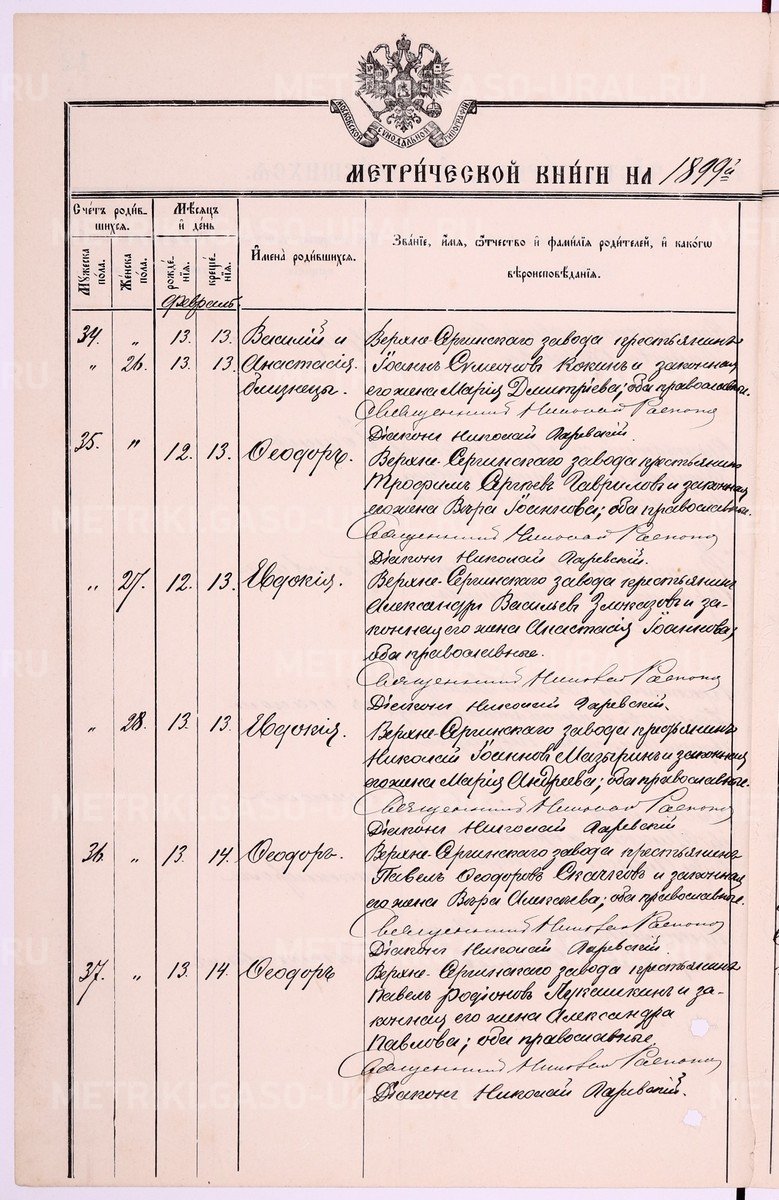 МОСКОВСКОЙ СѴНОДАЛЬНОЙ ТИПОГРАФІИ
МЕТРИ́ЧЕСКОЙ КНИ́ГИ НА 1899й
Сче́тъ роди́вшихсѧ.
Мѣ́сѧцъ и҆ де́нь
И҆мена̀ роди́вшихсѧ.
Зва́нїе, и҆́мѧ, ѻ҆́тчество и҆ фами́лїѧ роди́телей, и҆ како́гѡ вѣроисповѣ́данїѧ.
Мꙋ́жеска пола. Же́нска пола. рожде́нїѧ. креще́нїѧ.
Февраль.
34. „ 13. 13. Василій и Верхне-Сергинскаго завода крестьянинъ
„ 26. 13. 13. Анастасія Іоаннъ Кокинъ и законная
близнецы. его жена Марія Димитріева; оба православные.
Священникъ Николай
Діаконъ Николай Ларевскій.
35. „ 12. 13. Ѳеодоръ. Верхне-Сергинскаго завода крестьянинъ
Трофимъ Сергѣевъ Гавриловъ и законная
его жена Вѣра Іоаннова; оба православные.
Священникъ Николай
Діаконъ Николай Ларевскій.
„ 27. 12. 13. Евдокія. Верхне-Сергинскаго завода крестьянинъ
Александръ Васильевъ Злоказовъ и за-
конная его жена Анастасія Іоаннова;
оба православные.
Священникъ Николай
Діаконъ Николай Ларевскій.
„ 28. 13. 13. Евдокія. Верхне-Сергинскаго завода крестьянинъ
Николай Іоанновъ Мазыринъ и законная
его жена Марія Андреева; оба православные.
Священникъ Николай
Діаконъ Николай Ларевскій
36. „ 13. 14. Ѳеодоръ. Верхне-Сергинскаго завода крестьянинъ
Павелъ Ѳеодоровъ Скачковъ и законная
его жена Вѣра Алексѣева; оба православные.
Священникъ Николай
Діаконъ Николай Ларевскій.
37. „ 13. 14. Ѳеодоръ Верхне-Сергинскаго завода крестьянинъ
Павелъ Родіоновъ Лукашкинъ и за-
конная его жена Александра
Павлова; оба православные.
Священникъ Николай
Діаконъ Николай Ларевскій.